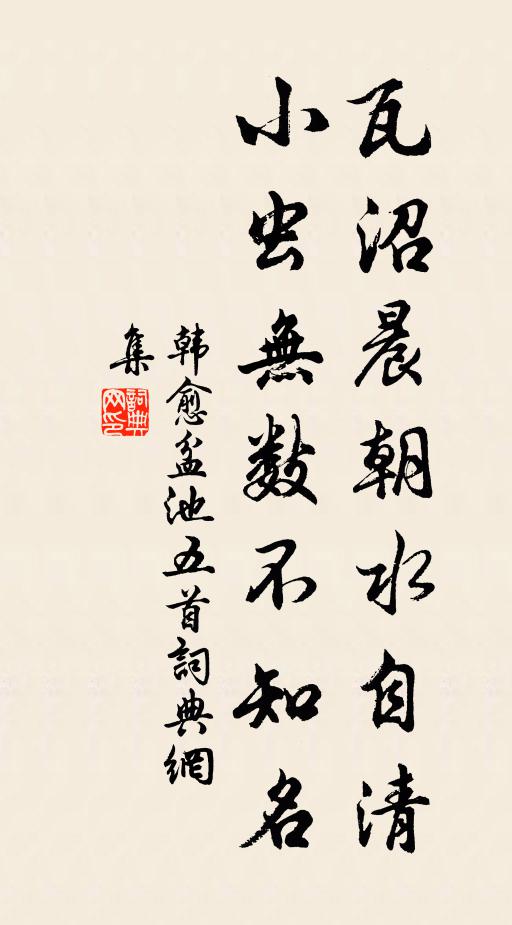 瓦沼晨朝水自清
小虫無数不知名
韩愈盆池五首詞典網
集
詞典
网印